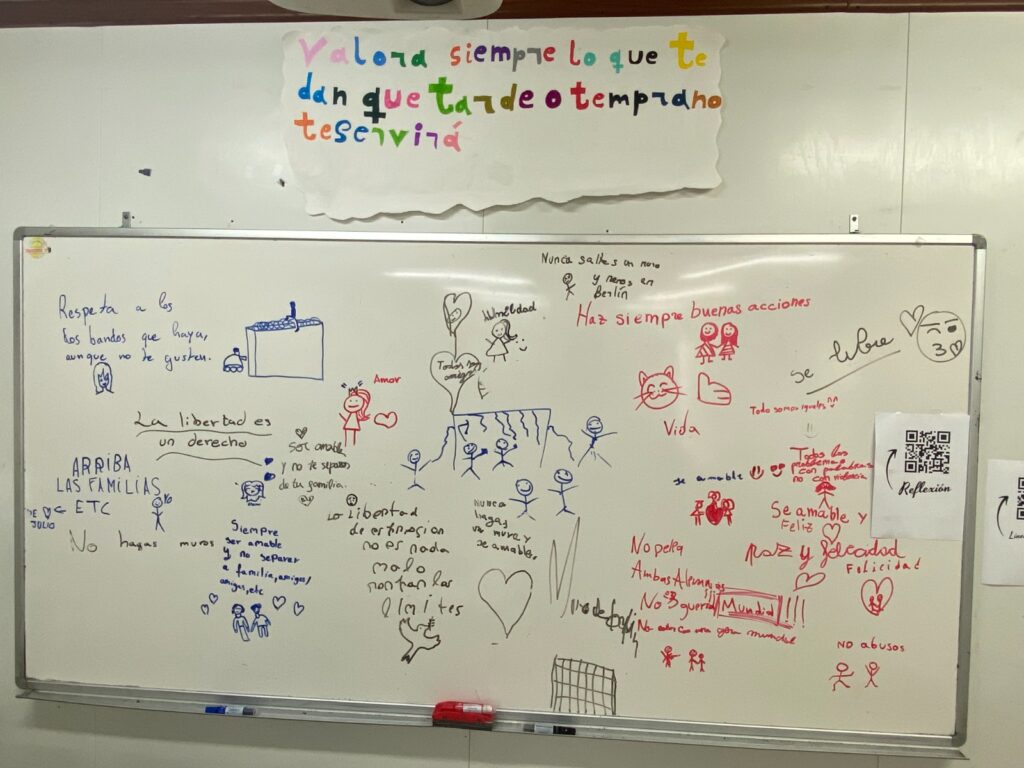 Valora siempre lo que te
dan que tarde o temprano
te servirá
Nunca saltes un muro
y menos en
Berlín
Respeta a los
los bandos que haya,
aunque no te gusten.
Humildad
Haz siempre buenas acciones
se libre
Todos
amigos
Amor
La libertad es
un derecho
Ser amable
y no te separes
de tu familia.
Vida
Todo somos iguales
ARRIBA
LAS FAMILIAS
ETC
DE JULIO
No hagas muros
Siempre
ser amable
y no separar
a familia, amigos,
amigas, etc
La libertad
de
no es nada
malo
los
límites
Nunca
hagas
un muro y
se amable.
se amable
Todos los
problemas
con palabras
no con violencia
Se amable y
Feliz
Paz y felicidad
Felicidad
No pelea
Ambas Alemanias
No guerra Mundial!!!
No una guerra mundial
NO abusos
Reflexión